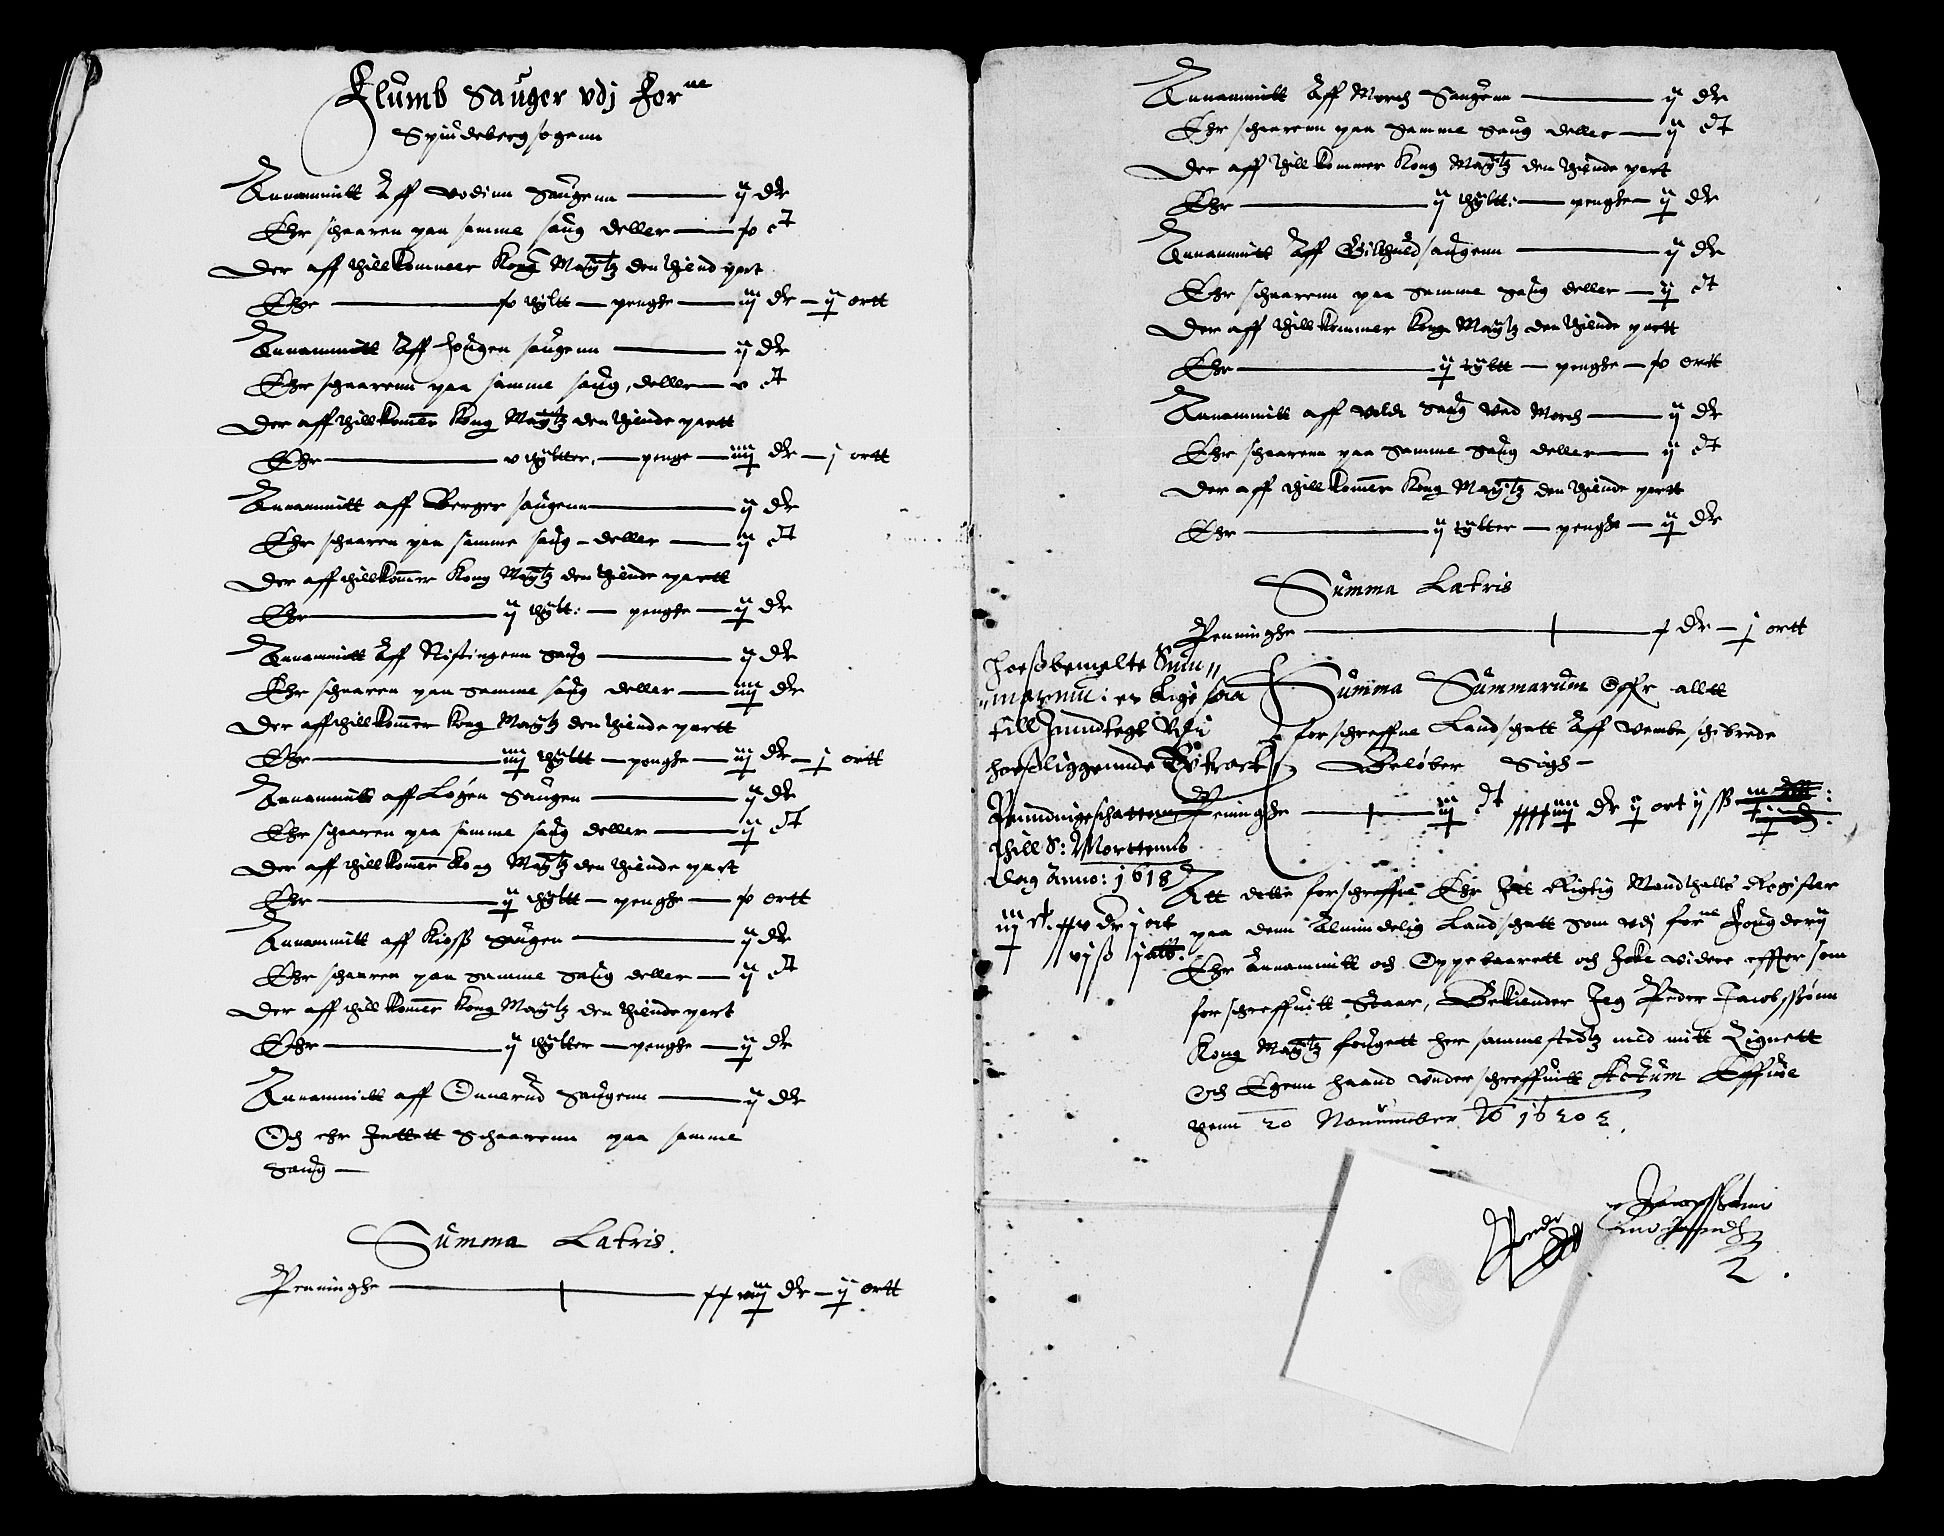 Flumb Sauger vdj For ne
Spiudeberg sogenn
Annammitt Aff vodinn Saugenn — ij dr
Ehr schaaren paa samme saug deller — so ct
Der aff thill kommeer Kong Maytz den thiend part
Ehr — so thyltt — penghe — iij dr — ij ortt
Annammitt Aff hougen saugenn — ij dr
Ehr schaarenn paa samme saug, deller — v ct
Der aff thill komer Kong Maytz den thiende partt
Ehr — v thyltter, — penge — iiij dr — j ortt
Annammitt aff Berger saugenn — ij dr
Ehr schaaren paa samme saug - deller — ij ct
Der aff thill komer Kong Maytz den thiende partt
Ehr — ij thylt: — penghe — ij dr
Annammitt Aff Ristingenn Saug — ij dr
Ehr schaaren paa samme saug deller — iiij dr
Der aff thill komer Kong Maytz den thiende partt
Ehr — iiij thyltt — penghe — iij dr — j ortt
Annammitt aff Løgen Saugen — ij dr
Ehr schaaren paa samme saug deller — ij ct
Der aff thill komer Kong Maytz den thiende part
Ehr — ij thyltt — penghe — so ortt
Annammitt aff Kioss Saugen — ij dr
Ehr schaaren paa samme Saug deller — ij ct
Der aff thill komer Kong Maytz den thiende part
Ehr — ij thyltter — penghe — ij dr
Annammitt aff Onnerud Saugenn — ij dr
Och ehr Inttett Schaarenn paa samme
Saug —
Summa Latris.
Penninghe — xxviij dr — ij ortt
Annammitt Aff Morch Saugenn — ij dr
Ehr schaarenn paa samme saug deller — ij ct
Der aff thill kommer Kong Maytz den thiende part
Ehr — ij thyltt: — penghe — ij dr
Annammitt Aff Gilhuus saugenn — ij dr
Ehr schaarenn paa samme saug deller — ij ct
Der aff thill kommer Kong Maytz den thiende partt
Ehr — ij tyltt — penghe — so ortt
Annammitt aff Saug Ved Morch — ij dr
Ehr schaarenn paa samme saug deller — ij ct
Der aff thill komer Kong Maytz den thiende partt
Ehr — ij tyltter — penghe — ij dr
Summa Latris
Penninghe — x dr — j ortt
Hoessbemelte Sum
marum: er ligh saa
till Inndtegt Vdi
hoessliggennde Extrackt
thill S: Morttenns
Dag Anno: 1618
Summa Summarum Offr alltt
forschreffne Landschatt Aff
Beløber Sigh —
Penninghe — ct xxxx dr ij ort ij ss
Att dette forschreffne Ehr Ret Rigtig Mandthalls Register
paa denn Almindelig Landschatt Som vdj forne Fougderij
Ehr Annammitt och Oppebaarett och Icke videre effter som
forschreffuitt Staar, Bekiender Jeg Peder Jacobssønn
Kong Maytz fougett her sammestedtz med mitt Zignett
Och Egenn haand vnderschreffuitt Actum
thenn 20 Nouuember Ao 1620
Peder Jacobssønn